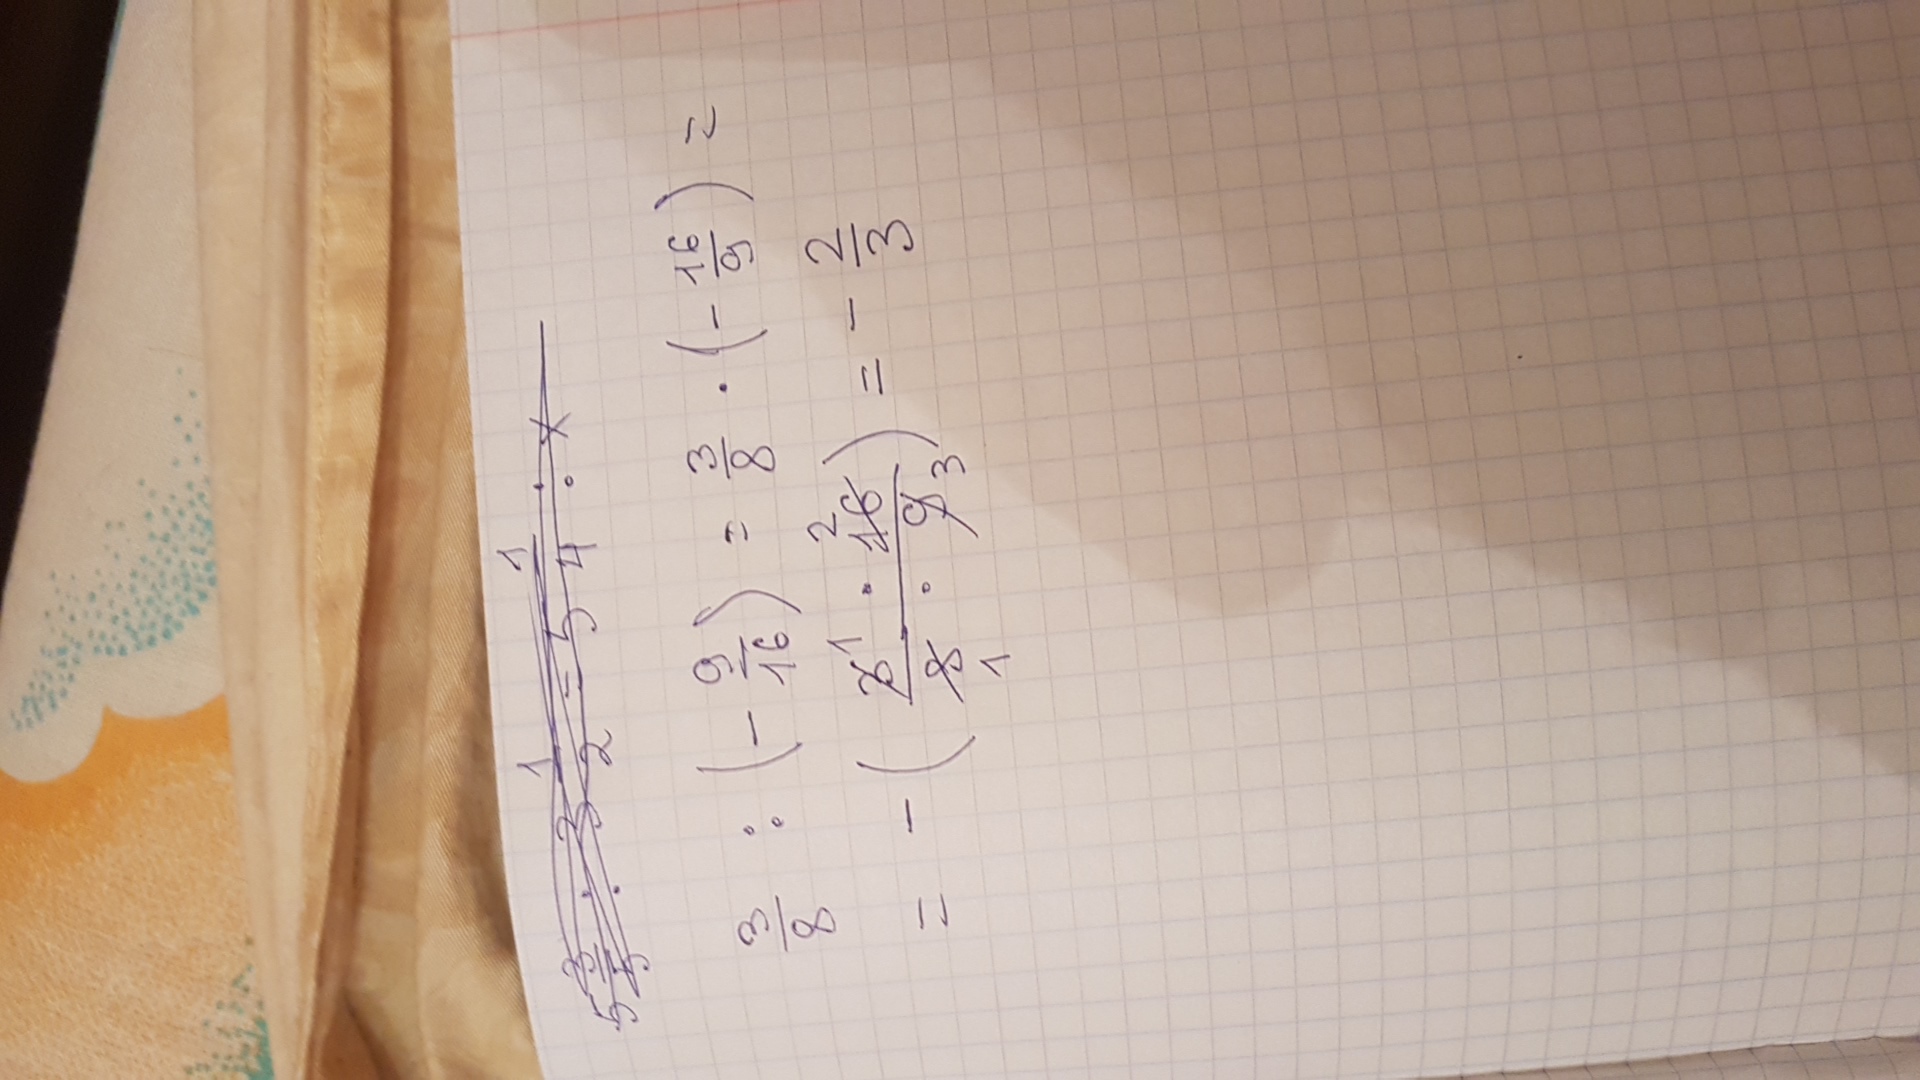 3/8 : (- 9/16) = 3/8 · (- 16/9) =
= - (3 1 · 16 2 / 8 1 · 9 3) = - 2/3